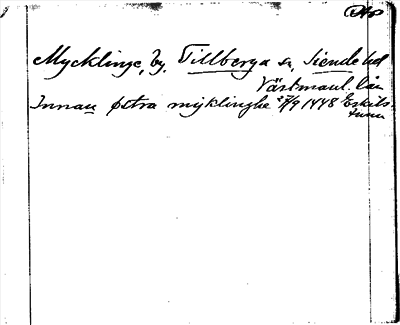 Mycklinge, by, Tillberga sn, Siende hd
Västmanl. län
Innan østra myklinghe 27/9 1448 Eskils-
tuna